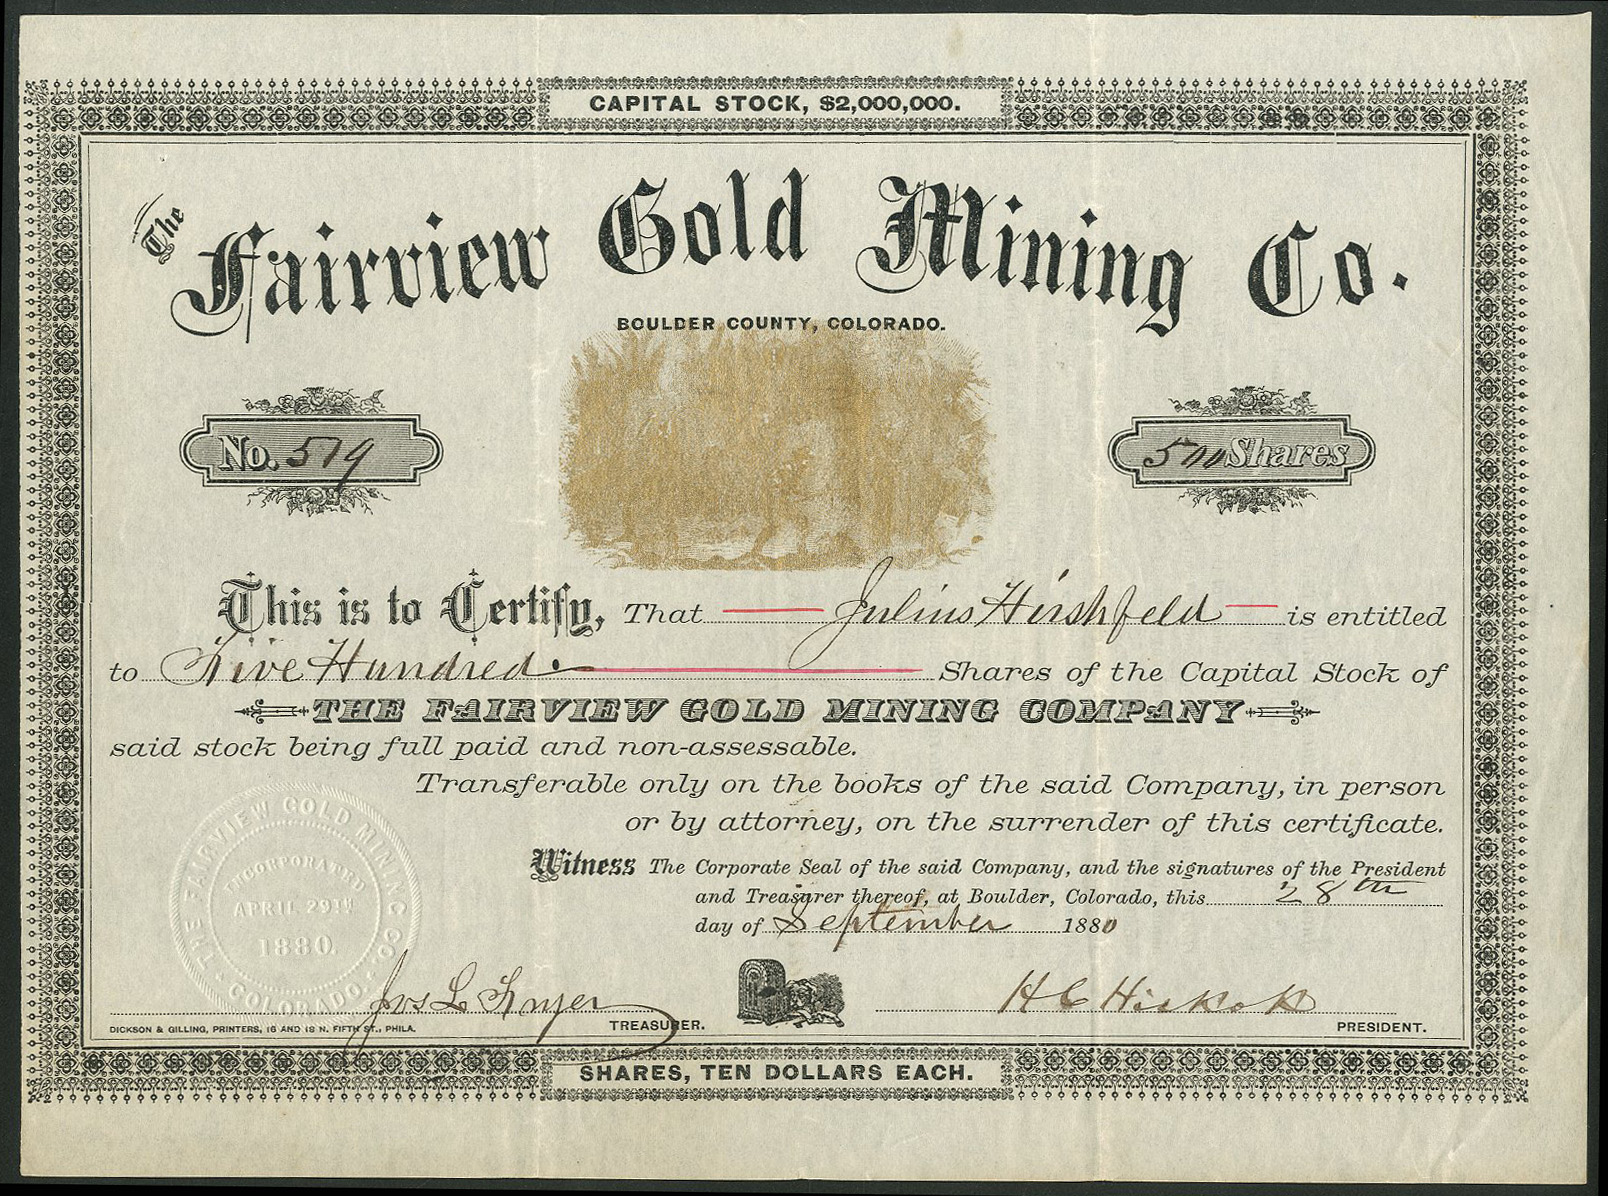 CAPITAL STOCK, $2,000,000.
The Fairview Gold Mining Co.
BOULDER COUNTY, COLORADO.
No. 519
500 Shares
This is to Certify, That Julius Hirshfeld is entitled
to Five Hundred Shares of the Capital Stock of
THE FAIRVIEW GOLD MINING COMPANY
said stock being full paid and non-assessable.
Transferable only on the books of the said Company, in person
or by attorney, on the surrender of this certificate.
Witness The Corporate Seal of the said Company, and the signatures of the President
and Treasurer thereof, at Boulder, Colorado, this 28th
day of September 1880
THE FAIRVIEW GOLD MINING CO.
COLORADO.
INCORPORATED
APRIL 29TH
1880.
Jos L
H C Hickok
DICKSON & GILLING, PRINTERS, 16 AND 18 N. FIFTH ST., PHILA.
TREASURER.
PRESIDENT.
SHARES, TEN DOLLARS EACH.